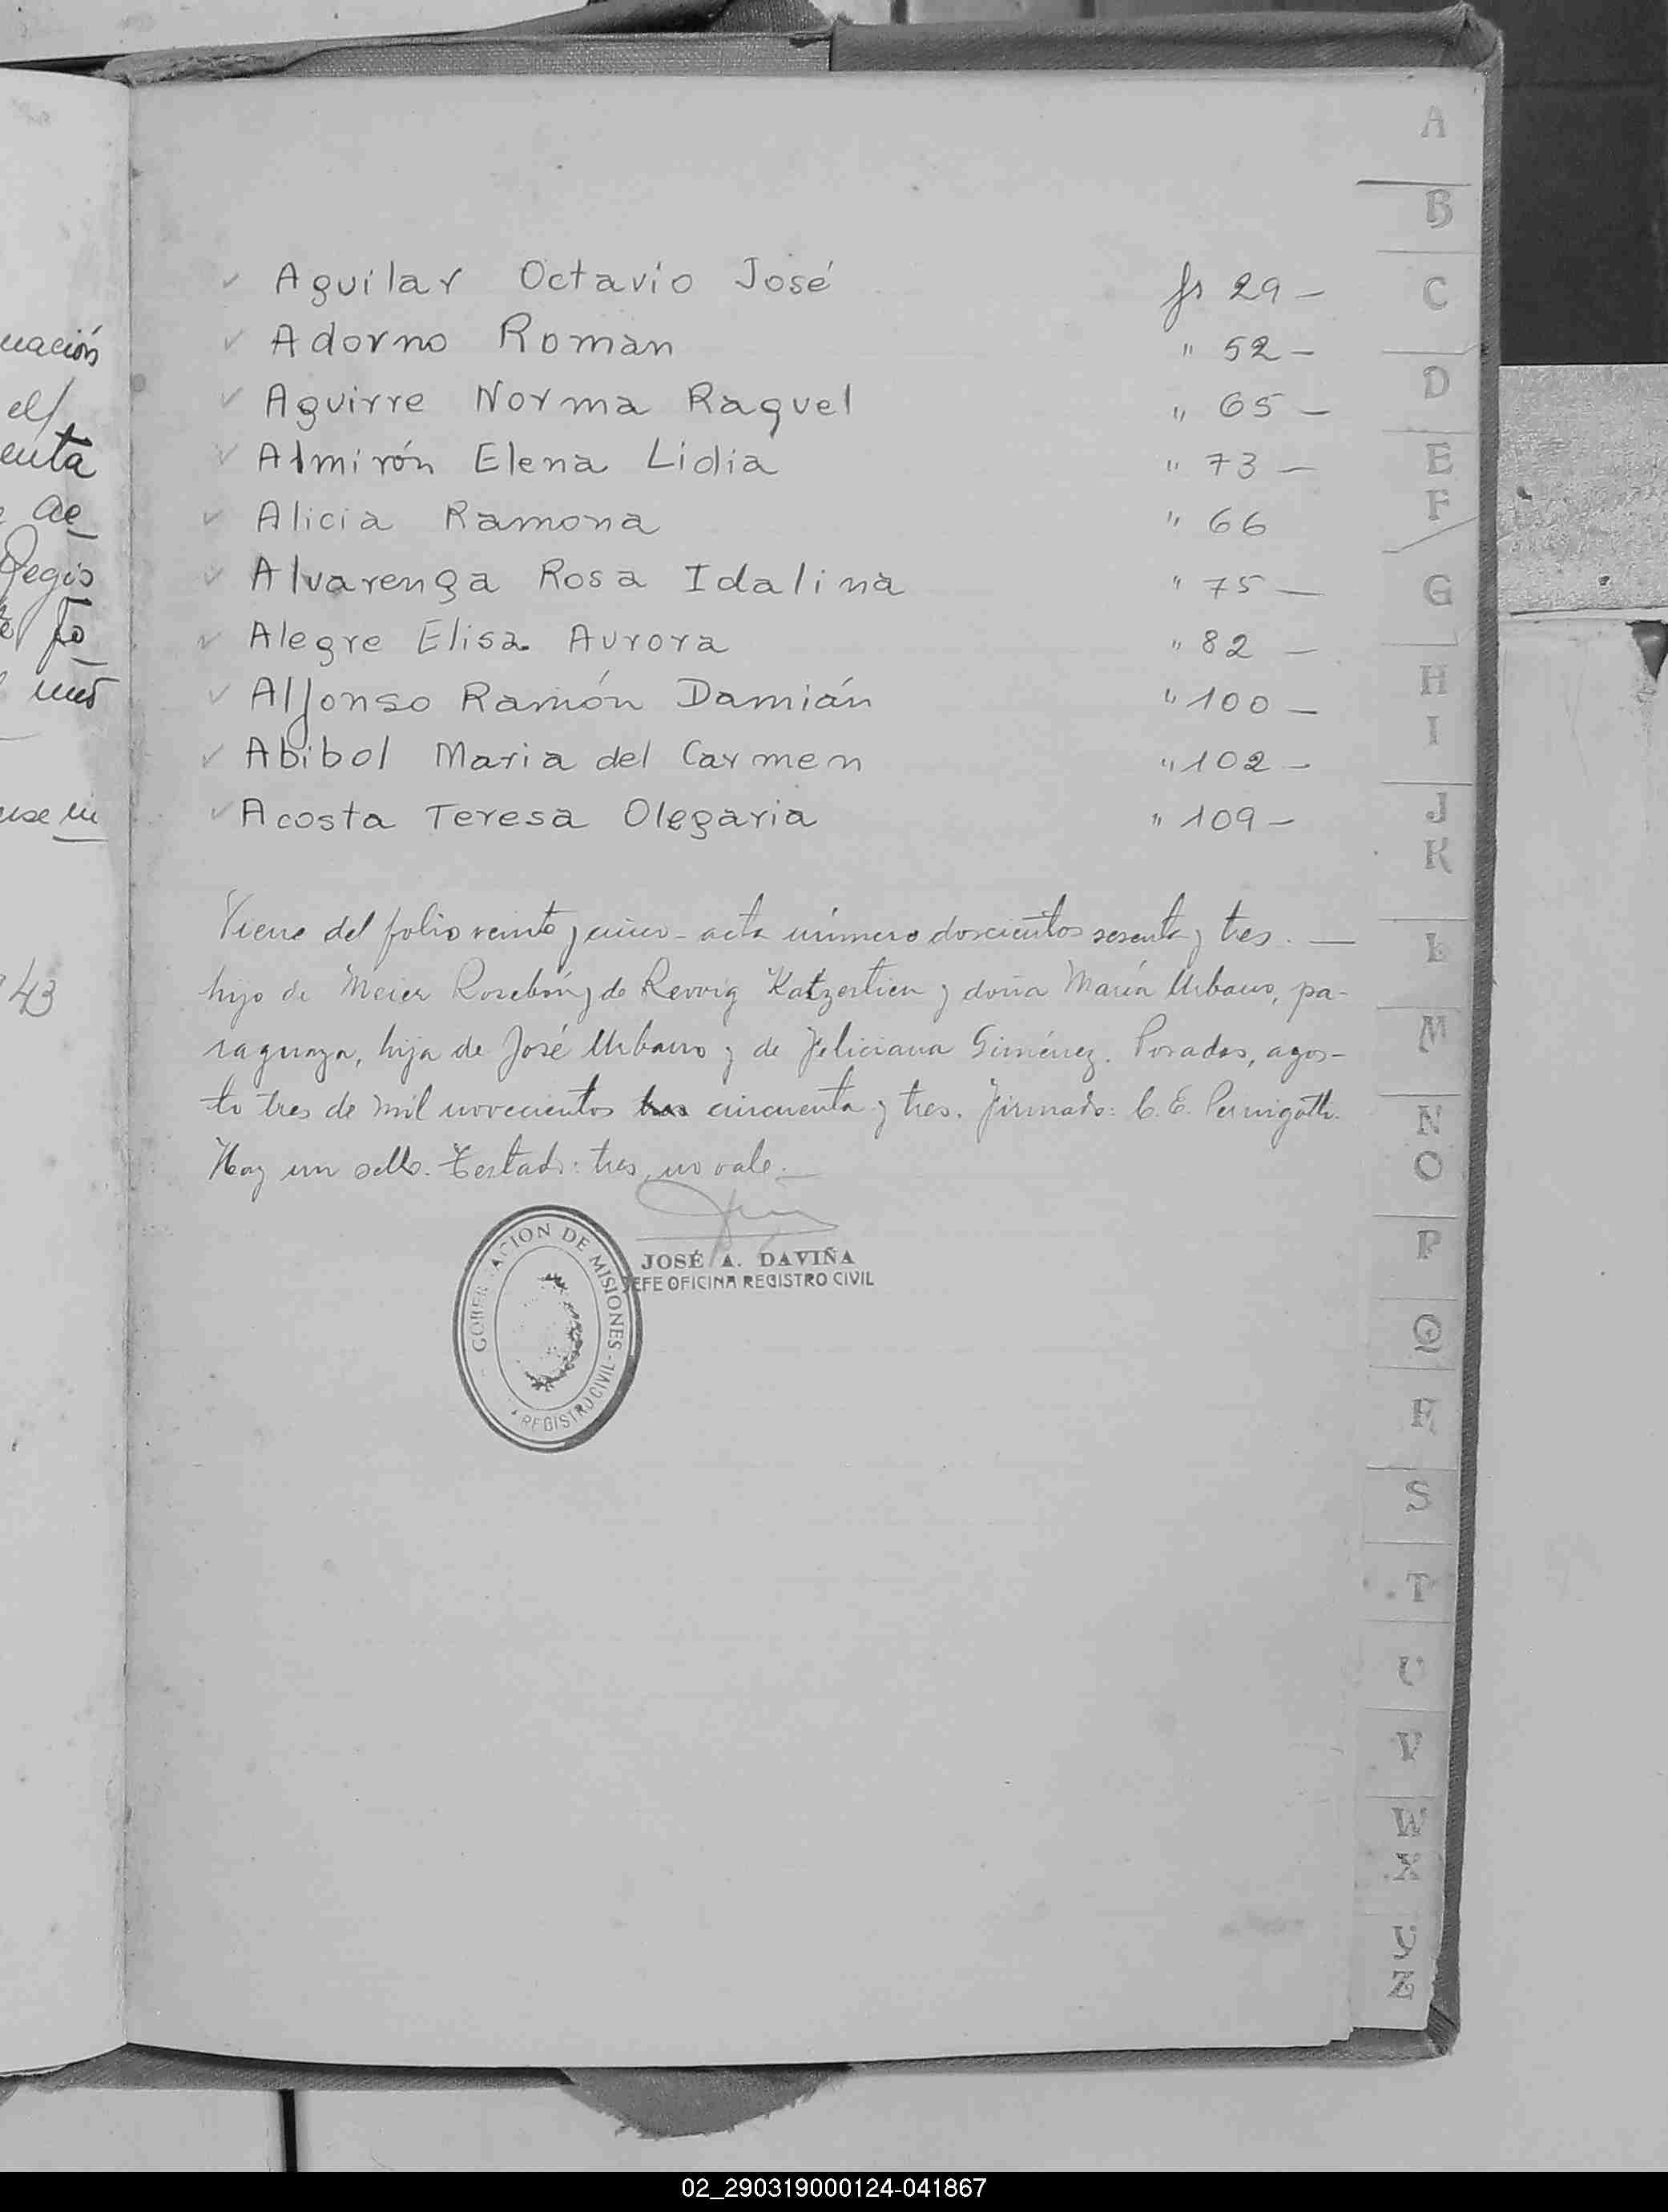 uación
el/
enta
ae
Regis
fo
use in
43
Aguilar Octavio José fs 29 —
Adorno Roman " 52 —
Aguirre Norma Raquel " 65 —
Almirón Elena Lidia " 73 —
Alicia Ramona " 66
Alvarenga Rosa Idalina " 75 —
Alegre Elisa Aurora " 82 —
Alfonso Ramón Damián " 100 —
Abibol Maria del Carmen " 102 —
Acosta Teresa Olegaria " 109 —
Viene del folio veinte y cinco - acta número doscientos sesenta y tres. —
hijo de Meier y de Katzerstien y doña María Urbano, pa-
raguaya, hija de José Urbano y de Feliciana Giménez. Posadas, agos-
to tres de mil novecientos tres cincuenta y tres. Firmado: C. E. Pernigotti.
Hay un sello. Testado: tres, no vale. —
JOSÉ A. DAVIÑA
JEFE OFICINA REGISTRO CIVIL
GOBERNACION DE MISIONES - REGISTRO CIVIL
A
B
C
D
E
F
G
H
I
J
K
L
M
N
O
P
Q
R
S
T
U
V
W
X
Y
Z
02_290319000124-041867